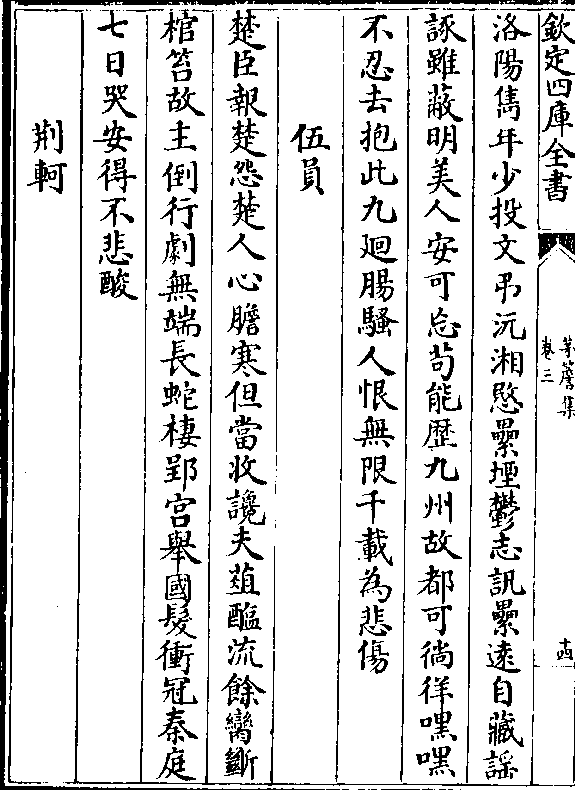 欽定四庫全書
茅簷集
卷三
十四
洛陽雋年少投文弔沅湘愍纍堙鬱志訊纍遠自藏謡
諑雖蔽明美人安可忘苟能歴九州故都可徜徉嘿嘿
不忍去抱此九廻腸騷人恨無限千載為悲傷
伍員
楚臣報楚怨楚人心膽寒但當收讒夫葅醢流餘臠斵
棺笞故主倒行劇無端長蛇棲郢宮舉國髮衝冠秦庭
七日哭安得不悲酸
荆軻